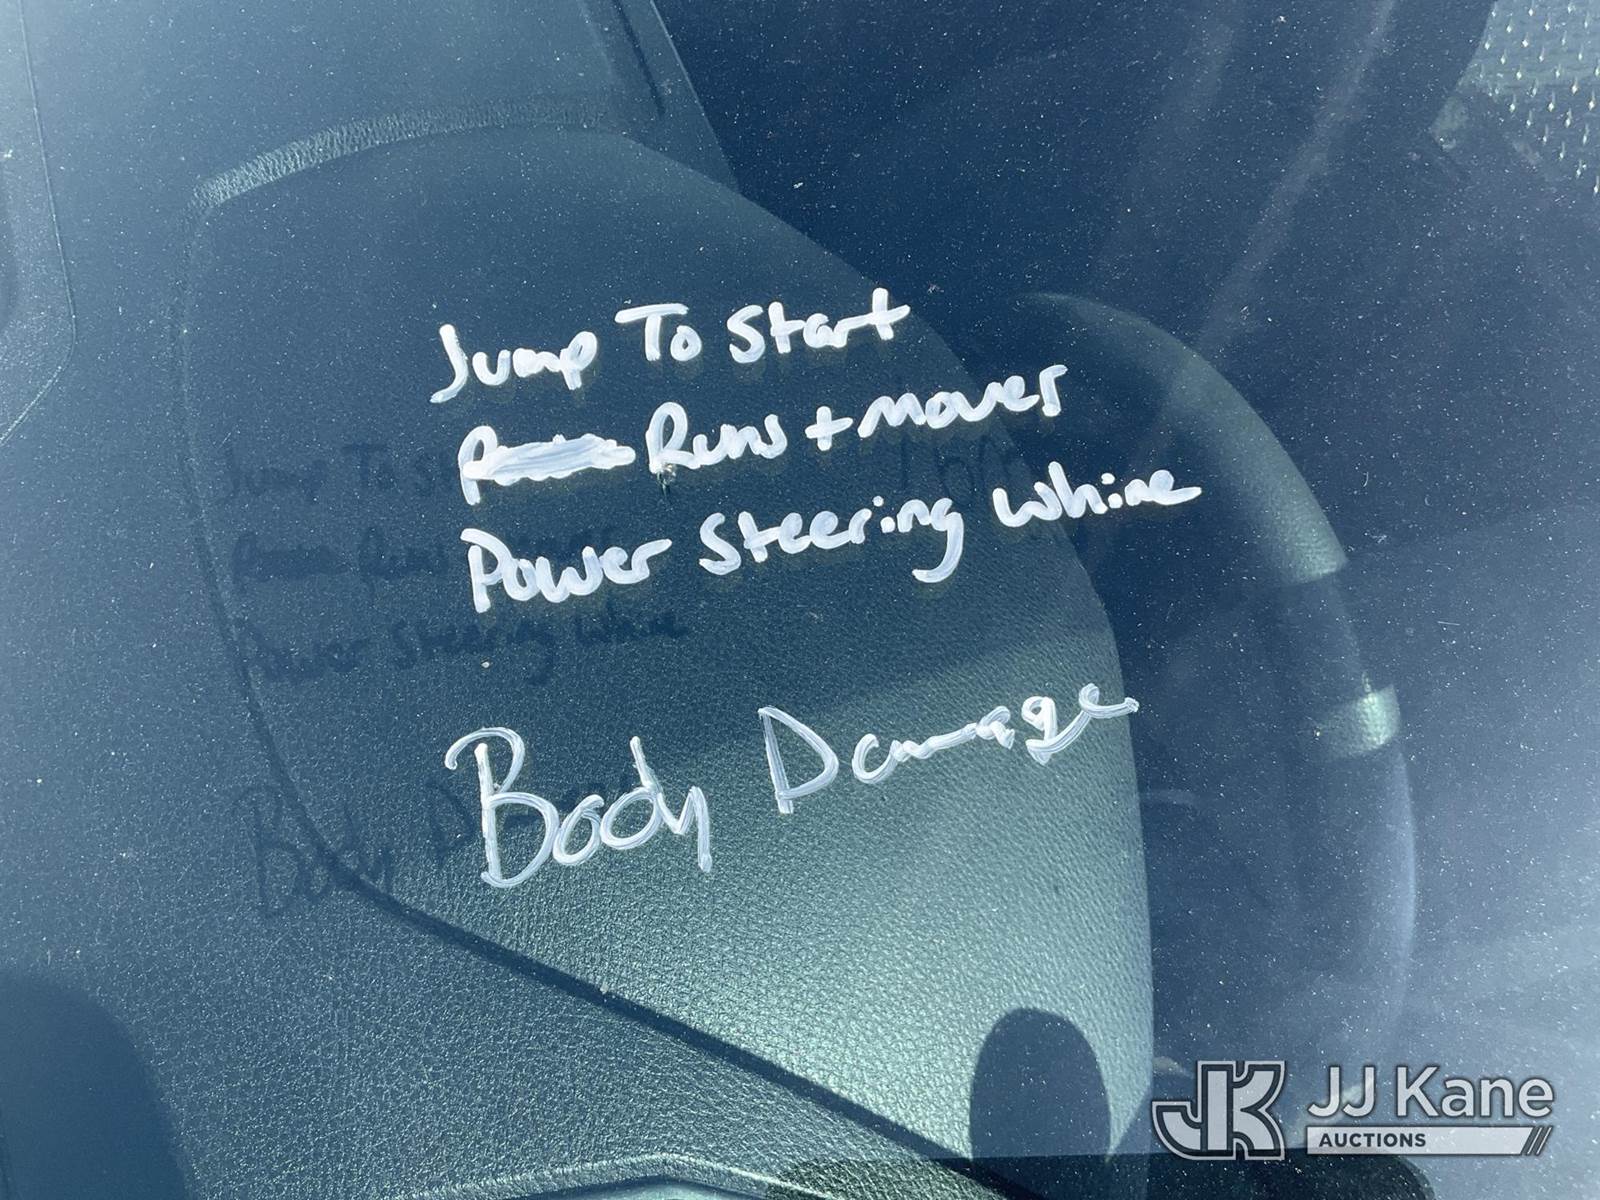 Jump To Start
Runs + mover
Power Steering Whine
Body Damage
JJ Kane
AUCTIONS